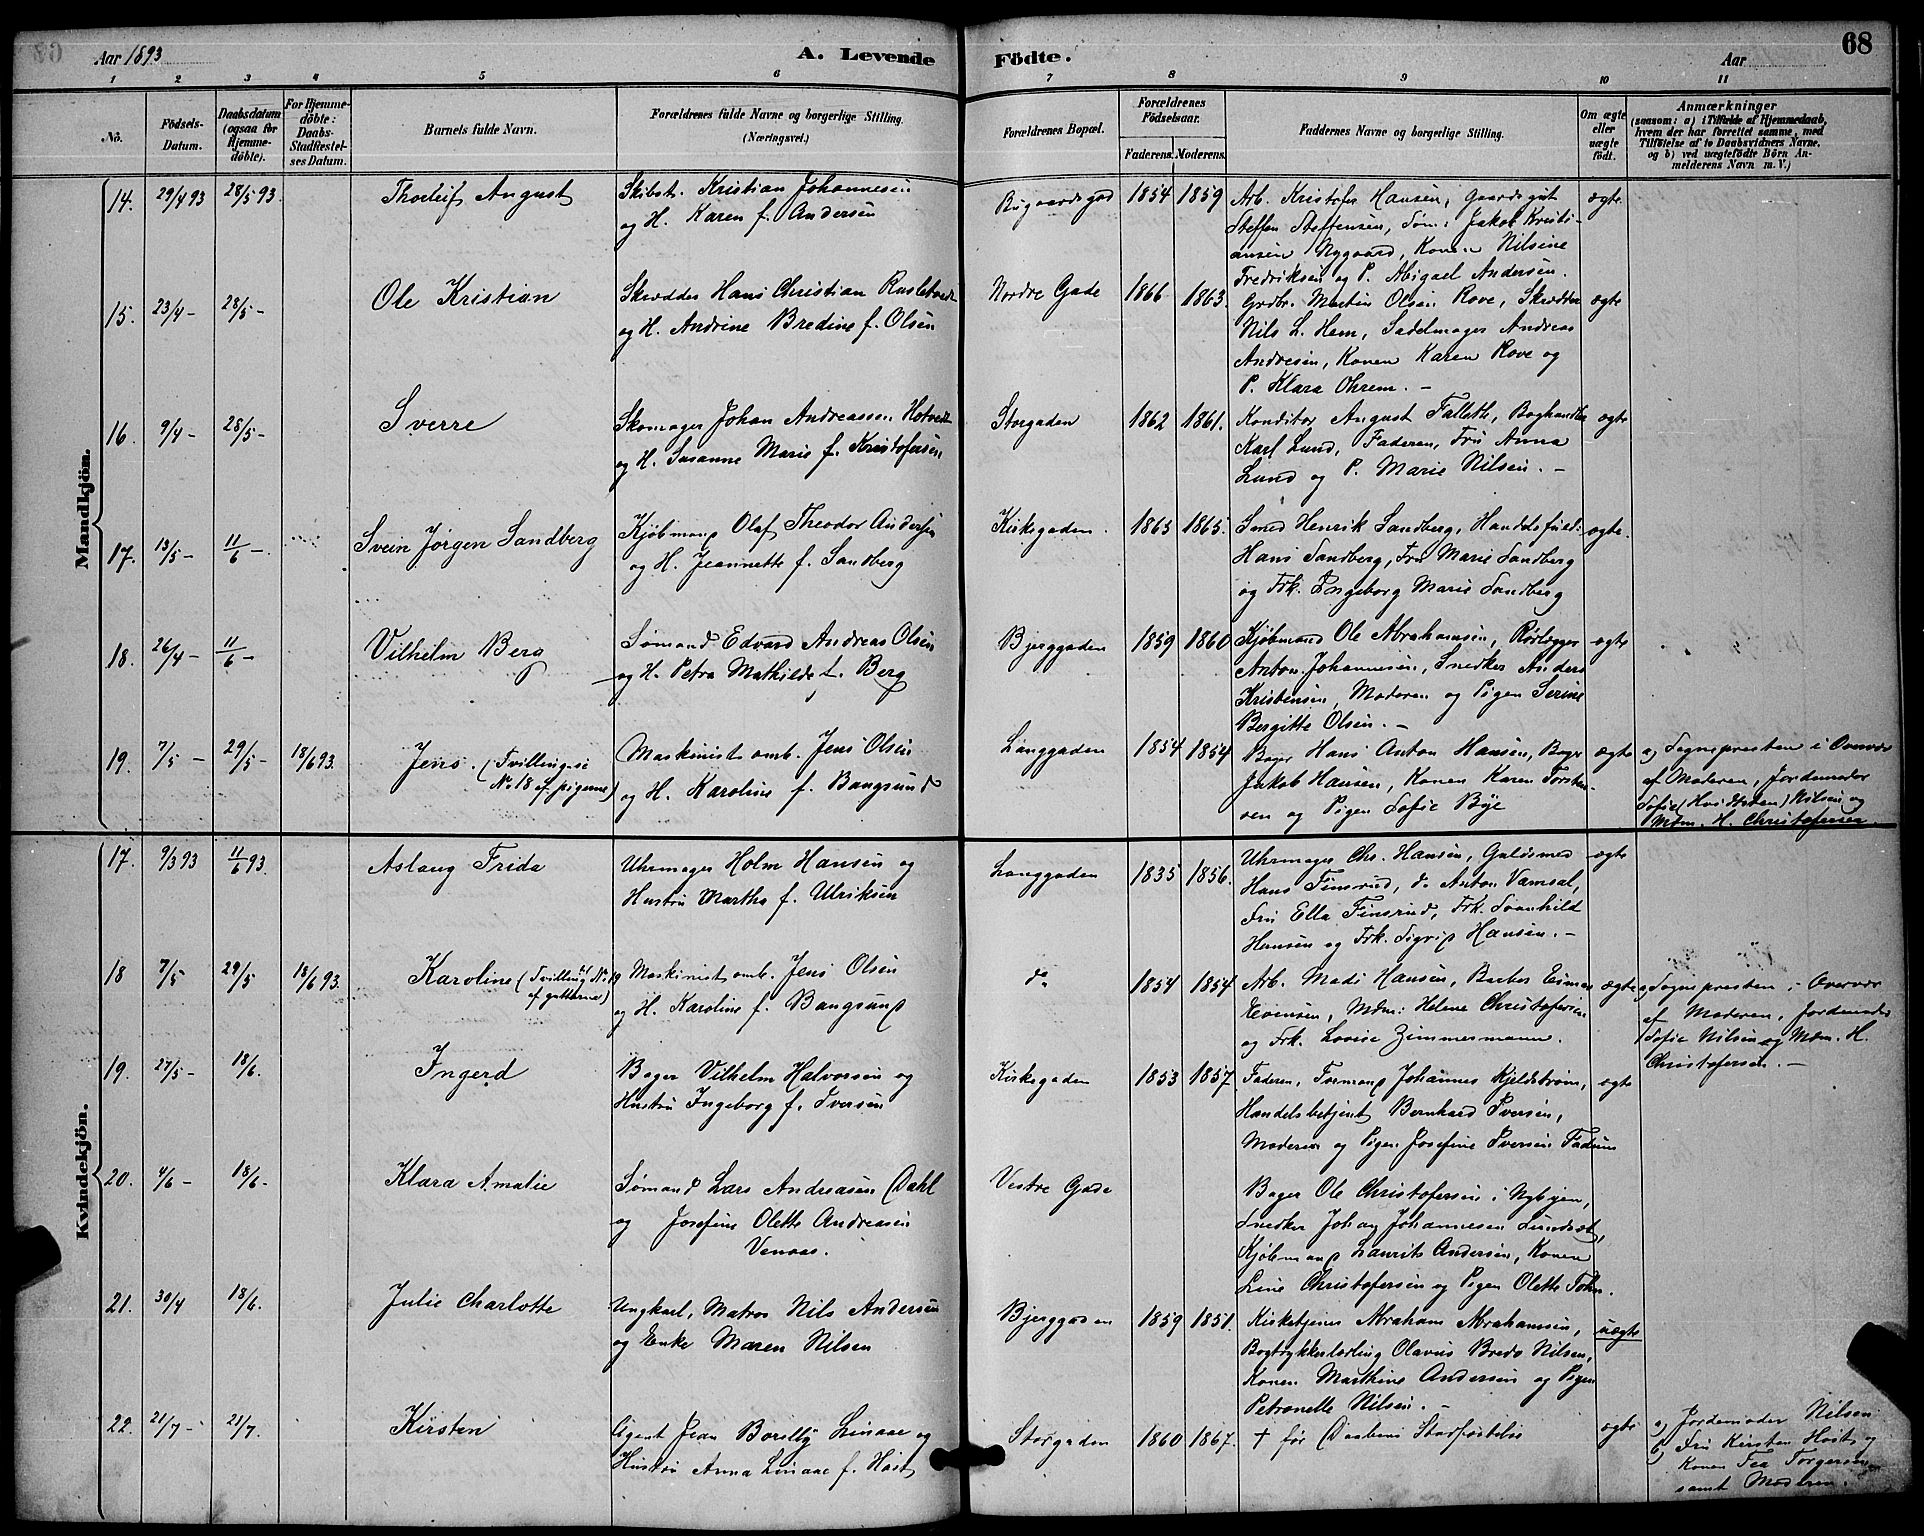 Aar 1893
A. Levende Födte.
Aar
68
1 2 3 4 5 6 7 8 9 10 11
No.
Födsels-Datum.
Daabsdatum (ogsaa for Hjemme-döbte).
For Hjemme-döbte: Daabs-Stadfæstel-ses Datum.
Barnets fulde Navn.
Forældrenes fulde Navne og borgerlige Stilling. (Næringsvei.)
Forældrenes Bopæl.
Forældrenes Födselsaar.
Faderens. Moderens.
Faddernes Navne og borgerlige Stilling.
Om ægte eller uægte födt.
Anmærkninger
(saasom: a) i Tilfælde af Hjemmedaab,
hvem der har forrettet samme, med
Tilföielse af to Daabsvidners Navne,
og b) ved uægtefödte Börn An-
melderens Navn m. V.)
Mandkjön.
14. 29/4 93 28/5 93. Thorleif August
Skibst. Kristian Johannesen
og H. Karen f. Andersen
1854 1859
Arb. Kristofer Hansen, Gaardsgut
Steffen Steffensen, Tøm: Jakob Kristi-
ansen Nygaard, Konen Nilsine
Fredriksen og P. Abigael Andersen.
ægte
15. 23/4 - 28/5 - Ole Kristian
Skrædder Hans Christian
og H. Andrine Bredine f. Olsen
Nordre Gade 1866 1863.
Grdbr. Martin Olsen Rove, Skrædder
Nils L. Hem, Sadelmager Andreas
Andresen, Konen Karen Rove og
P. Klara Ohrem. -
ægte
16. 9/4 - 28/5 - Sverre
Skomager Johan Andreassen Hotvedt
og H. Susanne Marie f. Kristofersen
Storgaden 1862 1861.
Konditor August Falleth, Boghandler
Karl Lund, Faderen, Fru Anna
Lund og P. Marie Nilsen. -
ægte
17. 13/5 - 11/6 -. Svein Jørgen Sandberg
Kjøbmand Olaf Theodor Andersen
og H. Jeannette f. Sandberg
Kirkegaden. 1863 1865.
Smed Henrik Sandberg, Handelsfuld.
Hans Sandberg, Fru Marie Sandberg
og Frk. Ingeborg Marie Sandberg
ægte.
18. 26/4 - 11/6 - Vilhelm Berg
Sømand Edvard Andreas Olsen
og H. Petra Mathilde f. Berg
Bjerggaden 1859 1860
Kjøbmand Ole Abrahamsen, Rørlægger
Anton Johannesen, Snedker Anders
Kristensen, Moderen og Pigen Serine
Bergitte Olsen. -
ægte
19. 7/5 - 29/5 - 18/6 93. Jens. (Tvilling-se
No. 18 af pigerne)
Maskinist omb. Jens Olsen
og H. Karoline f. Bangsund
Langgaden 1854 1854
Bager Hans Anton Hansen, Bager
Jakob Hansen, Konen Karen Torsten-
sen og Pigen Sofie Bye
ægte
a) Sognepresten i Overvær
af Moderen, Jordemoder
Sofie (Hvidsten) Nilsen og
Mdm. H. Christofersen
Kvindekjön.
17. 9/3 93 11/6 93. Aslaug Frida
Uhrmager Holm Hansen og
Hustru Martha f. Ulriksen
Langgaden 1835 1856.
Uhrmager Chr. Hansen, Guldsmed
Hans Finsrud, do Anton Vamsal,
Fru Ella Finsrud, Frk. Svanhild
Hansen og Frk. Sigrid Hansen. -
ægte
18 7/5 29/5 18/6 93. Karoline (Tvilling til No. 19
af gutterne)
Maskinist omb. Jens Olsen
og H. Karoline f. Bangsund
do 1854 1854.
Arb. Mads Hansen, Barber Einar
Evensen, Mdm: Helene Christofersen
og Frk. Lovise Zimmermann.
ægte
a) Sognepresten i Overvær
af Moderen, Jordemoder
Sofie Nilsen og Mdm. H.
Christofersen. -
19. 27/5 - 18/6. Ingerd
Bager Vilhelm Halvorsen og
Hustru Ingeborg f. Iversen
Kirkegaden 1853 1857
Faderen, Formand Johannes Kjeldstrøm,
Handelsbetjent Bernhard Iversen,
Moderen og Pigen Josefine Iversen Fadum
ægte
20. 4/6 - 18/6 - Klara Amalie
Sømand Lars Andreasen Dahl
og Josefine Olette Andreasen
Venaas.
Vestre Gade
Bager Ole Christofersen i Nybyen,
Snedker Johan Johannesen Lundsæt,
Kjøbmand Laurits Andersen, Konen
Line Christofersen og Pigen Olette
21. 30/4 18/6. Julie Charlotte
Ungkarl, Matros Nils Andersen
og Enke Maren Nilsen
Bjerggaden 1859 1851.
Kirketjener Abraham Abrahamsen,
Bogtrykkerlærling Olavus Bredo Nilsen,
Konen Marthine Andersen og Pigen
Petronelle Nilsen. -
uægte
22. 21/7 - 21/7. Kirsten
Agent Jean Borelly Linaae og
Hustru Anna Linaae f. Høst
Storgaden 1860 1867.
† før Daabens Stadfæstelse
ægte
a) Jordemoder Nilsen
b) Fru Kirsten Høst og
Konen Tea Torgersen
samt Moderen.